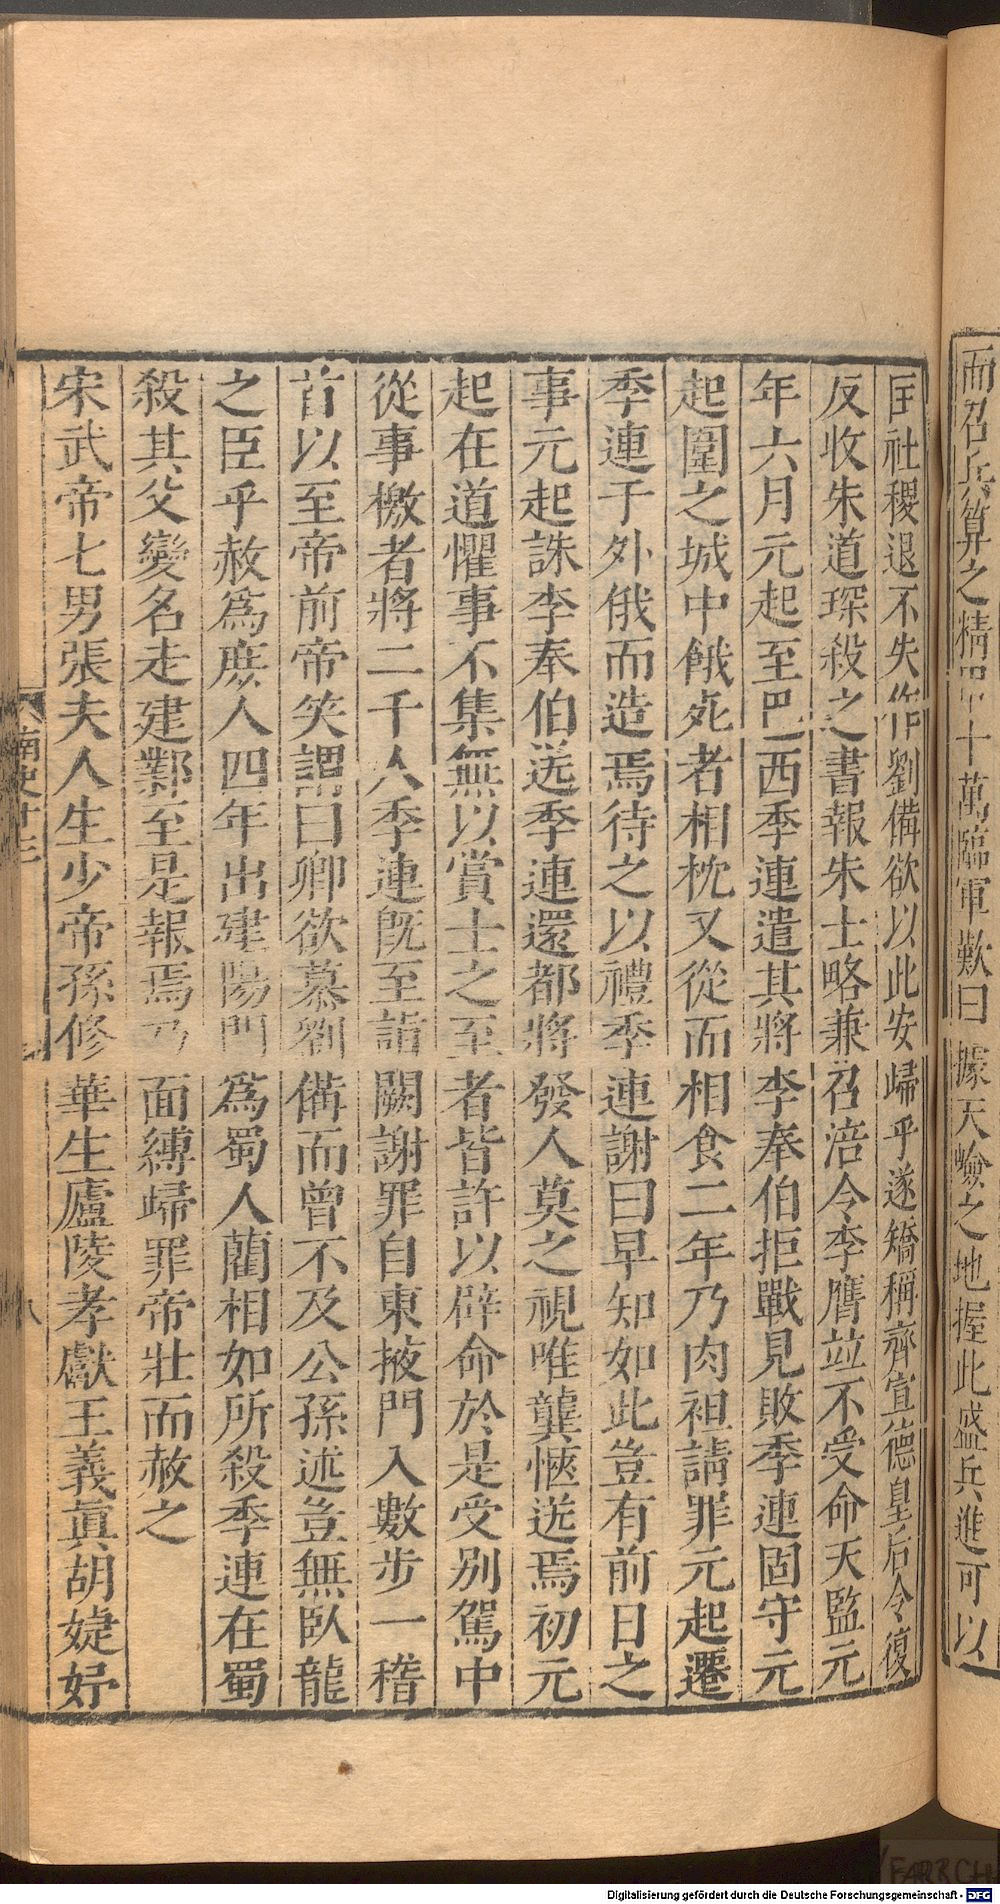 而召兵算之精甲十萬臨軍歎曰據天嶮之地握此盛兵進可以
匡社稷退不失作劉備欲以此安歸乎遂矯稱齊宣德皇后令復
反收朱道琛殺之書報朱士略兼召涪令李膺竝不受命天監元
年六月元起至巴西季連遣其將李奉伯拒戰見敗季連固守元
起圍之城中餓死者相枕又從而相食二年乃肉袒請罪元起遷
季連于外俄而造焉待之以禮季連謝曰早知如此豈有前日之
事元起誅李奉伯送季連還都將發人莫之視唯龔愜送焉初元
起在道懼事不集無以賞士之至者皆許以辟命於是受別駕中
從事檄者將二千人季連既至詣闕謝罪自東掖門入數步一稽
首以至帝前帝笑謂曰卿欲慕劉備而曾不及公孫述豈無臥龍
之臣乎赦爲庶人四年出建陽門爲蜀人藺相如所殺季連在蜀
殺其父變名走建鄴至是報焉乃面縛歸罪帝壯而赦之
宋武帝七男張夫人生少帝孫修華生廬陵孝獻王義眞胡婕妤
南史十三
八
Digitalisierung gefördert durch die Deutsche Forschungsgemeinschaft - DFG